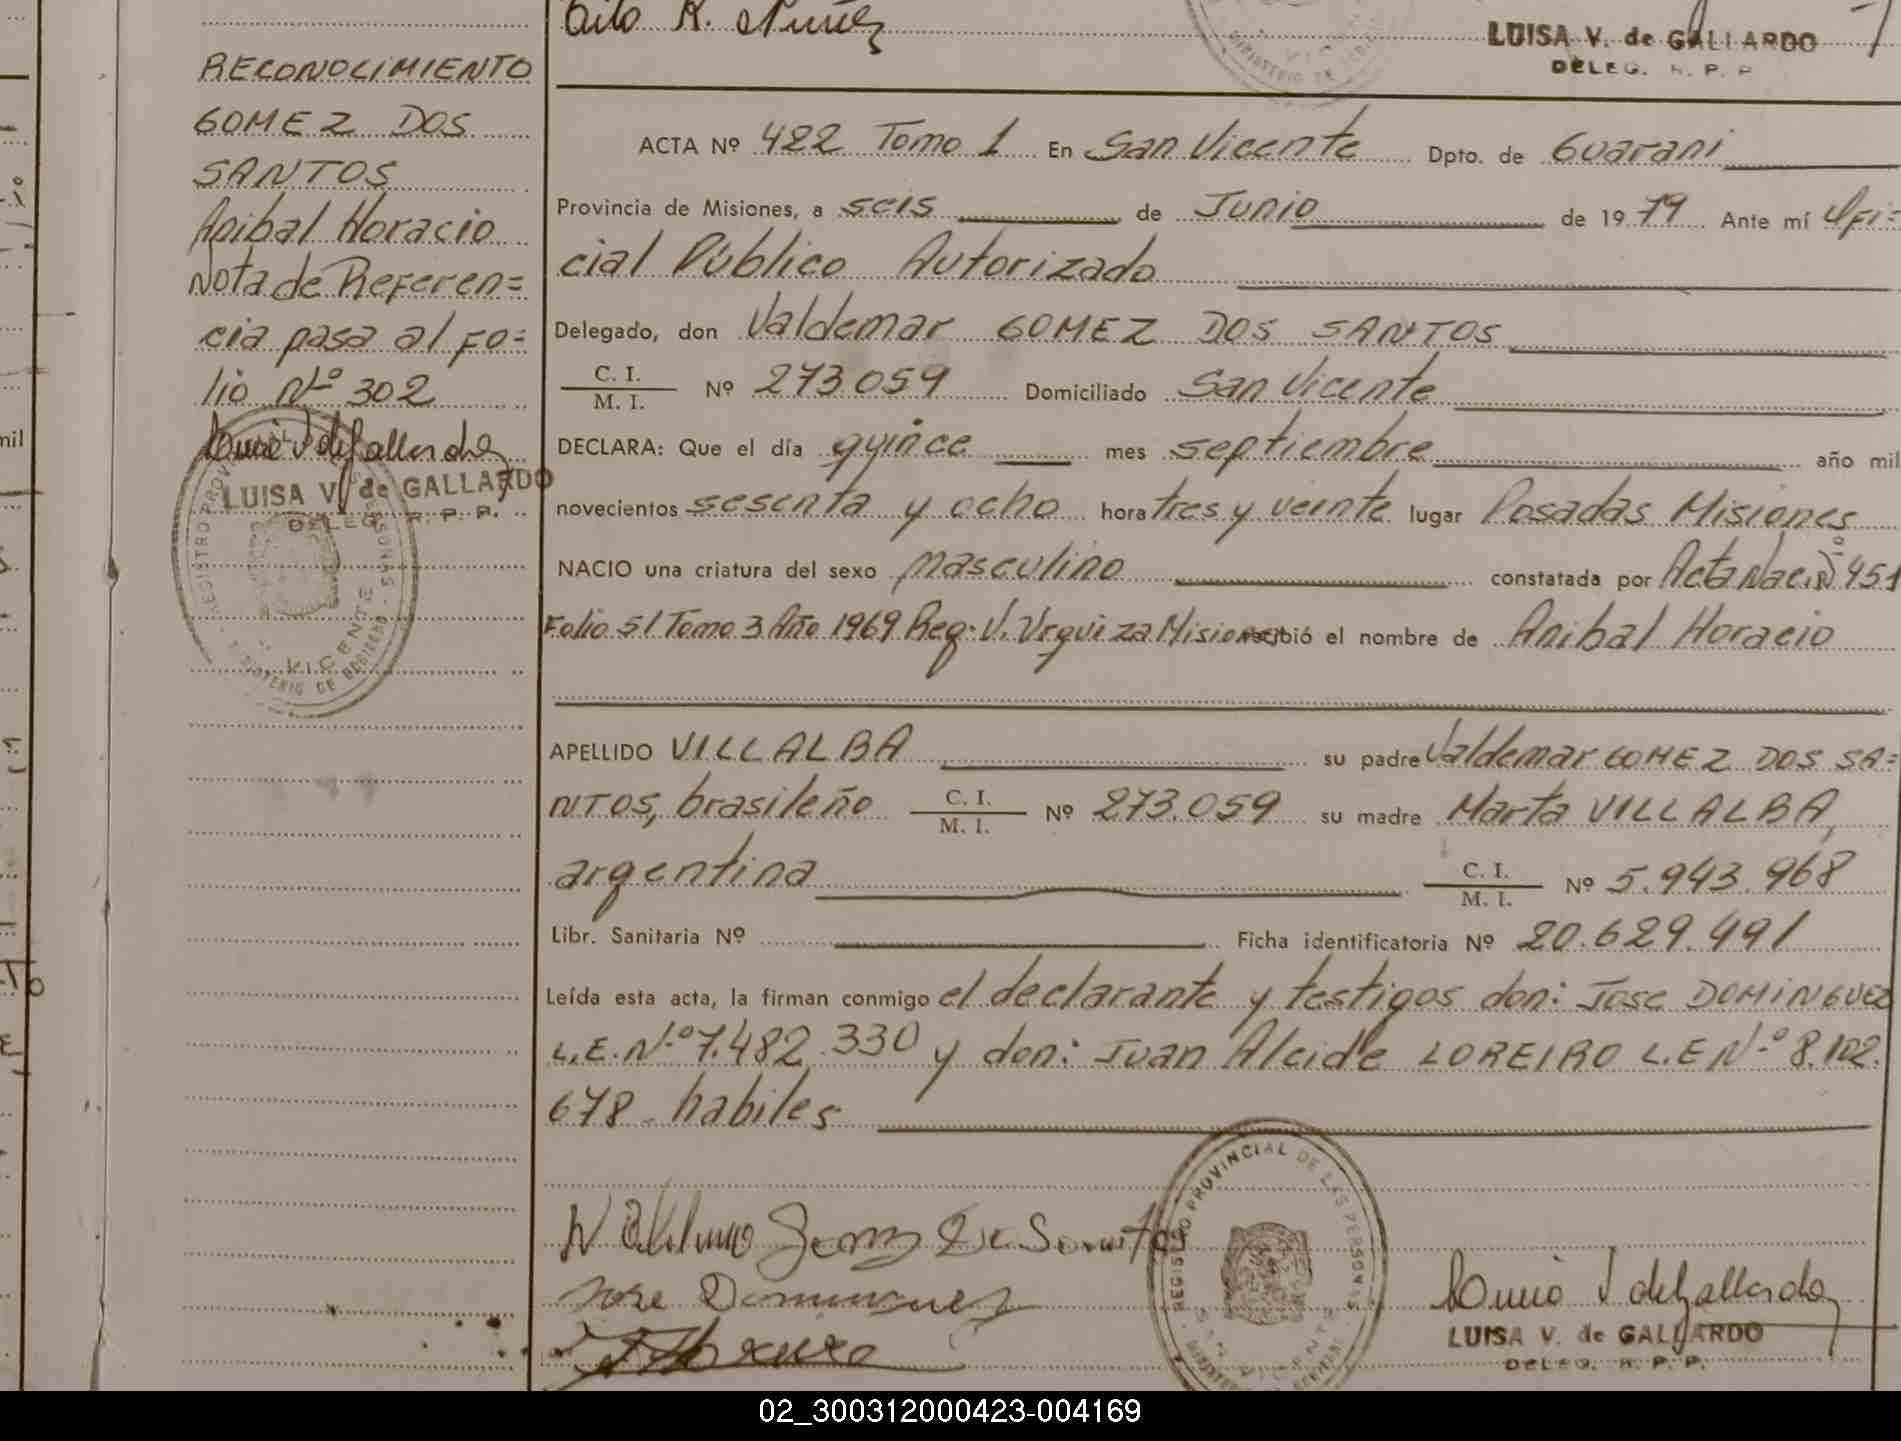 Tito R. Nuñez
LUISA V. de GALLARDO
DELEG. R. P. P.
RECONOCIMIENTO
GOMEZ DOS
SANTOS
Anibal Horacio
Nota de Referen=
cia pasa al Fo=
lio Nº 302
LUISA V. de GALLARDO
DELEG. R. P. P.
ACTA Nº 422 Tomo 1 En San Vicente Dpto. de Guarani
Provincia de Misiones, a seis de Junio de 1979 Ante mí Ofi=
cial Público Autorizado
Delegado, don Valdemar GOMEZ DOS SANTOS
C. I. / M. I. Nº 273.059 Domiciliado San Vicente
DECLARA: Que el día quince mes septiembre año mil
novecientos sesenta y ocho hora tres y veinte lugar Posadas Misiones
NACIO una criatura del sexo masculino constatada por Acta Nac. Nº 451
Folio 51 Tomo 3 Año 1969 Reg. V. Urquiza Misiones recibió el nombre de Anibal Horacio
APELLIDO VILLALBA su padre Valdemar GOMEZ DOS SA=
NTOS, brasileño C. I. / M. I. Nº 273.059 su madre Marta VILLALBA,
argentina C. I. / M. I. Nº 5.943.968
Libr. Sanitaria Nº Ficha identificatoria Nº 20.629.491
Leída esta acta, la firman conmigo el declarante y testigos don: Jose DOMINGUEZ
L.E. Nº 7.482.330 y don: Juan Alcide LOREIRO L.E Nº 8.102.
678 habiles
REGISTRO PROVINCIAL DE LAS PERSONAS
Jose Dominguez
LUISA V. de GALLARDO
DELEG. R. P. P.
02_300312000423-004169